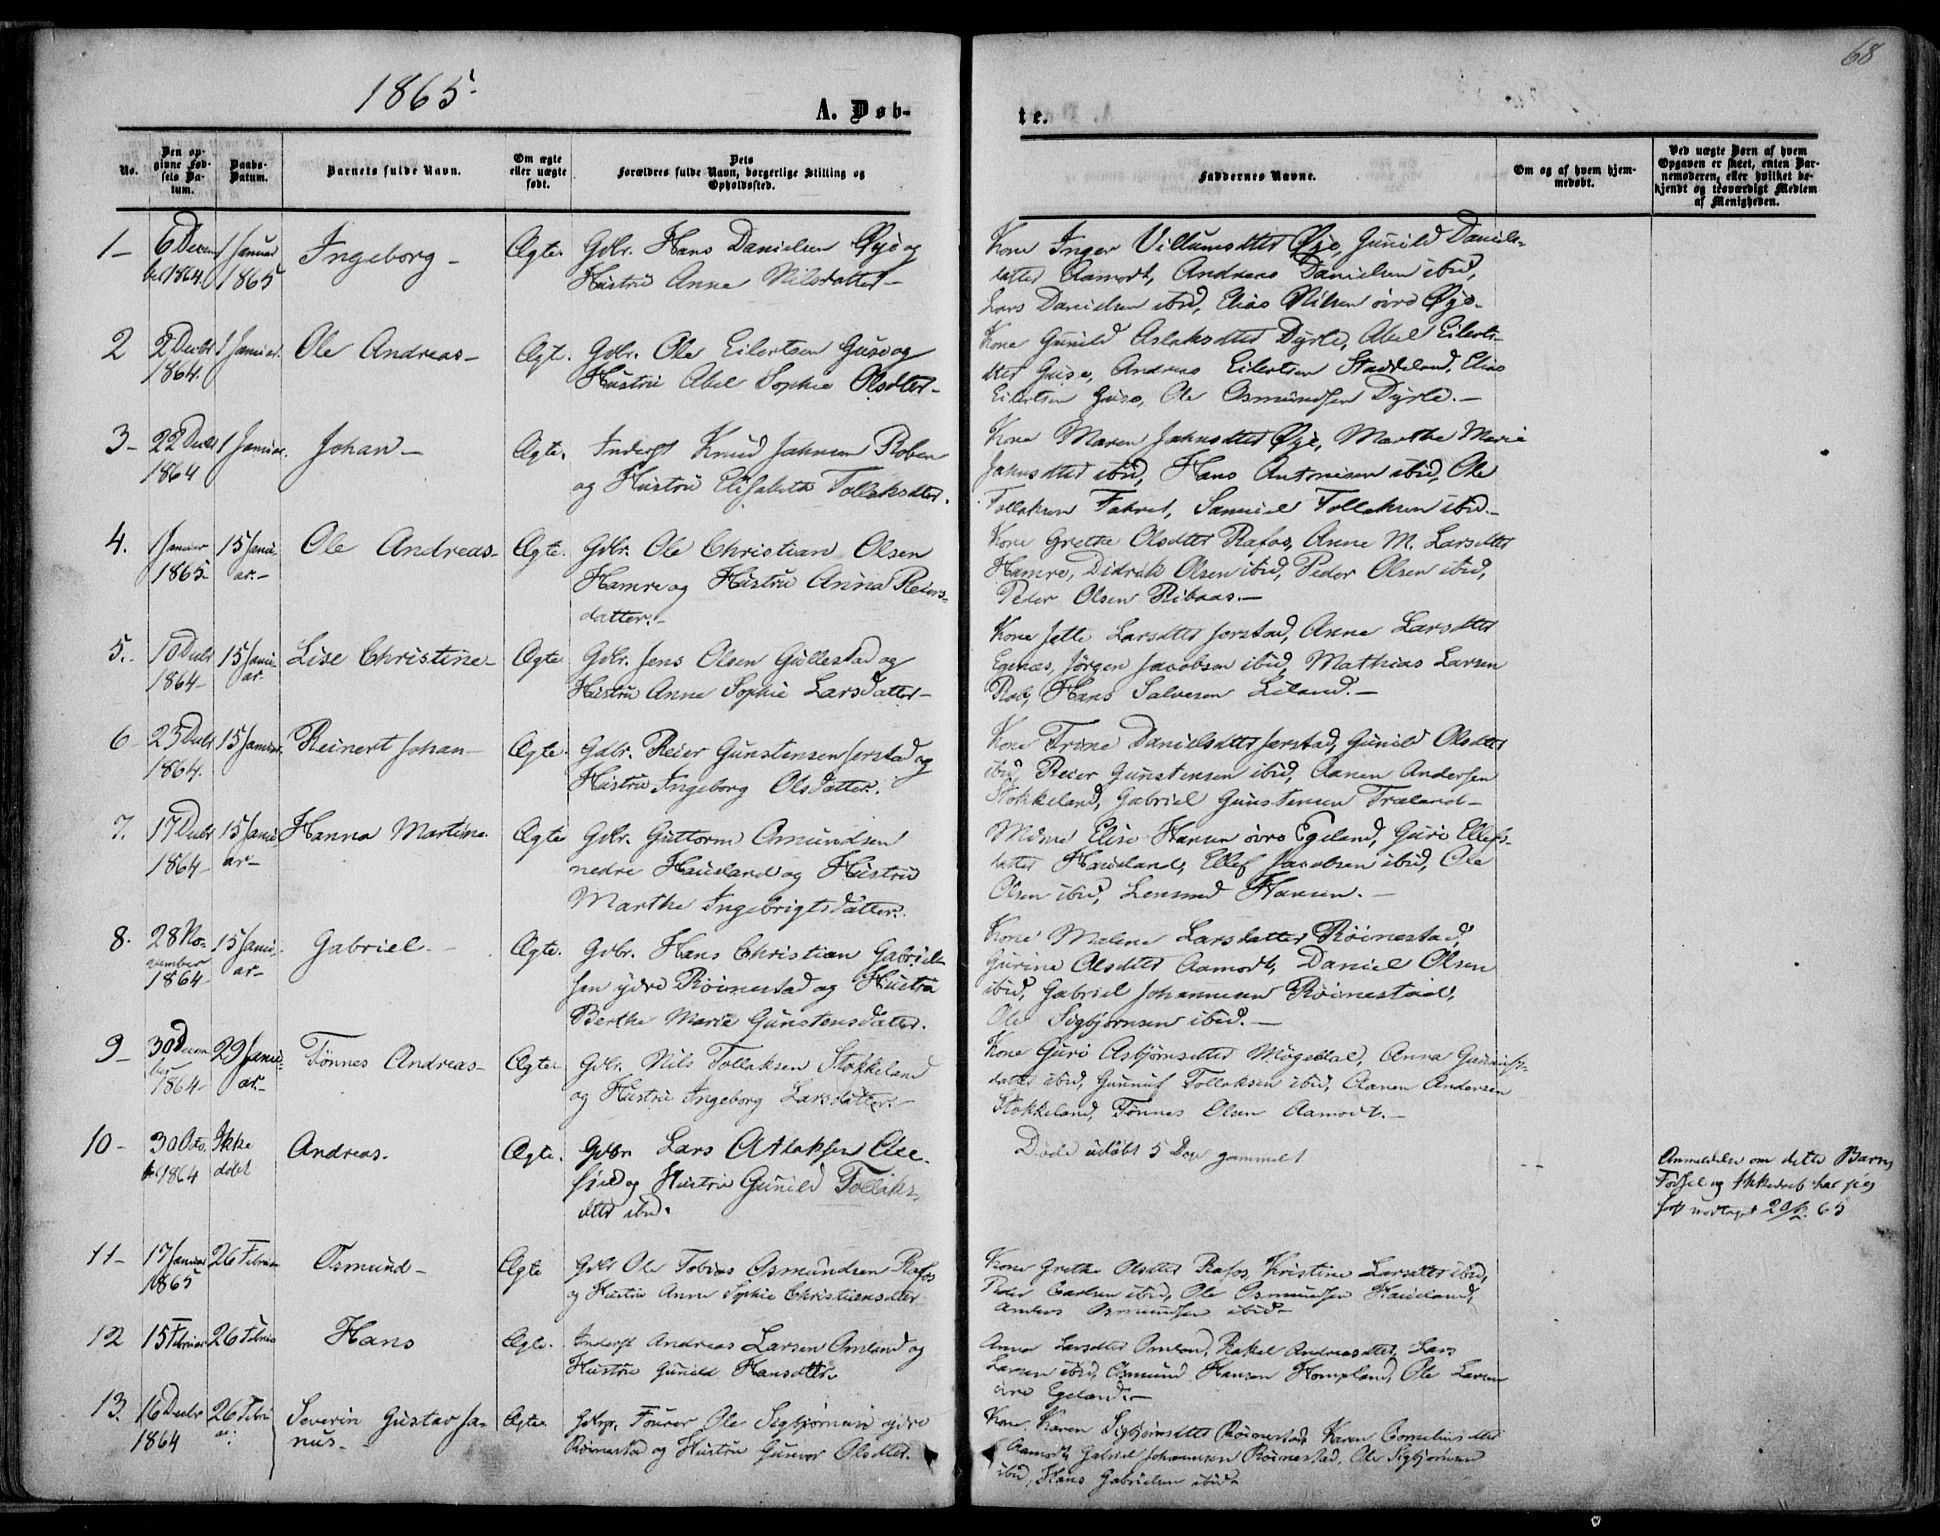 68
1865.
A. Døb-
te.
No.
Den op-
givne Fød-
sels Da-
tum.
Daabs-
Datum.
Barnets fulde Navn.
Om ægte
eller uægte
født.
Dets
Forældres fulde Navn, borgerlige Stilling og
Opholdssted.
Faddernes Navne.
Om og af hvem hjem-
medøbt.
Ved uægte Børn af hvem
Opgaven er skeet, enten Bar-
nemoderen, eller hvilket be-
kjendt og troværdigt Medlem
af Menigheden.
1- 6 Decem 1 Januar Ingeborg- Ægte. Gdbr. Hans Danielsen Øye og
ber 1864. 1865 Hustru Anna Nilsdatter-
Kone Inger Villumsdtter Øye, Gunild Daniels-
datter Aamodt, Andreas Danielsen ibid,
Lars Danielsen ibid, Elias Nilsen øvre Øye-
2 2 Decbr 1 Januar. Ole Andreas- Ægt. Gdbr. Ole Eilertsen Guse og
1864. Hustru Abel Sophie Olsdtter-
Kone Gunild Aslaksdtter Dyrle, Abel Eilerts-
dtter Guse, Andreas Eilertsen Staddeland, Elias
Eilertsen Guse, Ole Osmundsen Dyrle.-
3- 22 Decbr 1 Januar. Johan- Ægte. Inderst Knud Jahnsen Roben
1864 og Hustru Elisabeth Tollaksdtter.
Kone Maren Jahnsdtter Øye, Marthe Marie
Jahnsdtter ibid, Hans Antonisen ibid, Ole
Tollaksen Fahret, Samuel Tollaksen ibid.-
4. 1 Januar 15 Janu- Ole Andreas- Ægte. Gdbr. Ole Christian Olsen
1865- ar.- Hamre og Hustru Anna Reiers-
datter.-
Kone Grethe Olsdtter Rafos, Anne M. Larsdtter
Hamre, Didrik Olsen ibid, Peder Olsen ibid,
Peder Olsen Ribaas.-
5. 10 Decbr 15 Janu- Lise Christine- Ægte Gdbr. Jens Olsen Gullestad og
1864- ar. Hustru Anne Sophie Larsdatter-
Kone Jette Larsdtter Jerstad, Anne Larsdtter
Egenæs, Jørgen Jacobsen ibid, Mathias Larsen
Rob, Hans Salvesen Eiland.-
6- 23 Decbr 15 Januar. Reinert Johan- Ægte. Gdbr. Reier Gunstensen Jerstad og
1864. Hustru Ingeborg Olsdatter.
Kone Trine Danielsdtter Jerstad, Gunild Olsdtter
ibid, Reier Gunstensen ibid, Aanen Andersen
Stokkeland, Gabriel Gunstensen Træland-
7. 17 Decbr 15 Janu- Hanna Martine. Ægte Gdbr. Guttorm Omundsen
1864- ar- nedre Haugland og Hustru
Marthe Ingebrigtsdatter.
Elise Hansen øvre Egeland, Guri Ellefs-
datter Haugland, Ellef Jacobsen ibid, Ole
Olsen ibid, Lensmd Hansen.-
8. 28 No- 15 Janu- Gabriel.- Ægte. Gdbr. Hans Christian Gabriel-
vember ar-
1864- sen ydre Røinestad og Hustru
Berthe Marie Gunstensdatter.
Kone Malene Larsdatter Røinestad,
Gurine Olsdtter Aamodt, Daniel Olsen
ibid, Gabriel Johannesen Røinestad,
Ole Sigbjørnsen ibid.-
9- 30 Decem 29 Janu- Tønnes Andreas- Ægte. Gdbr. Nils Tollaksen Stokkeland
ber ar-
1864- og Hustru Ingeborg Larsdatter.-
Kone Guri Asbjørnsdtter Mygedal, Anna Gunnufs-
datter ibid, Gunnuf Tollaksen ibid, Aanen Andersen
Stokkeland, Tønnes Olsen Aamodt.-
10- 30 Octo. Ikke Andreas. Ægte. Gdbr. Lars Atlaksen
ber 1864 døbt og Hustru Gunild Tollaks-
dtter ibid.
Døde udøbt 5 Dage gammel
Anmeldelse om dette Barns
Fødsel og har jeg
først modtaget 65
11- 17 Januar 26 Februar Osmund- Ægte Gdbr Ole Tobias Osmundsen Rafos
1865 og Hustru Anne Sophie Christiansdtter
Kone Grethe Olsdtter Rafos, Kristine Larsdtter ibid,
Peder Carlsen ibid, Ole Osmundsen Haugland,
Anders Osmundsen ibid-
12 15 Februar 26 Februar Hans Ægte. Inderst Andreas Larsen Omland og
Hustru Gunild Hansdtter.
Anna Larsdtter Omland, Rakel Andreasdtter, Lars
Larsen ibid, Osmund Hansen Hompland, Ole Larsen
øvre Egeland.-
13. 16 Decbr 26 Febru Severin Gustav Ja- Ægte. Ole Sigbjørnsen ydre
1864 ar: nus.- Røinestad og Hustru Gunvor Olsdtter.
Kone Karen Sigbjørnsdtter Røinestad, Karen Corneliusdtter
Aamodt, Gabriel Johannesen Røinestad, Ole Sigbjørnsen
ibid, Hans Gabrielsen ibid-